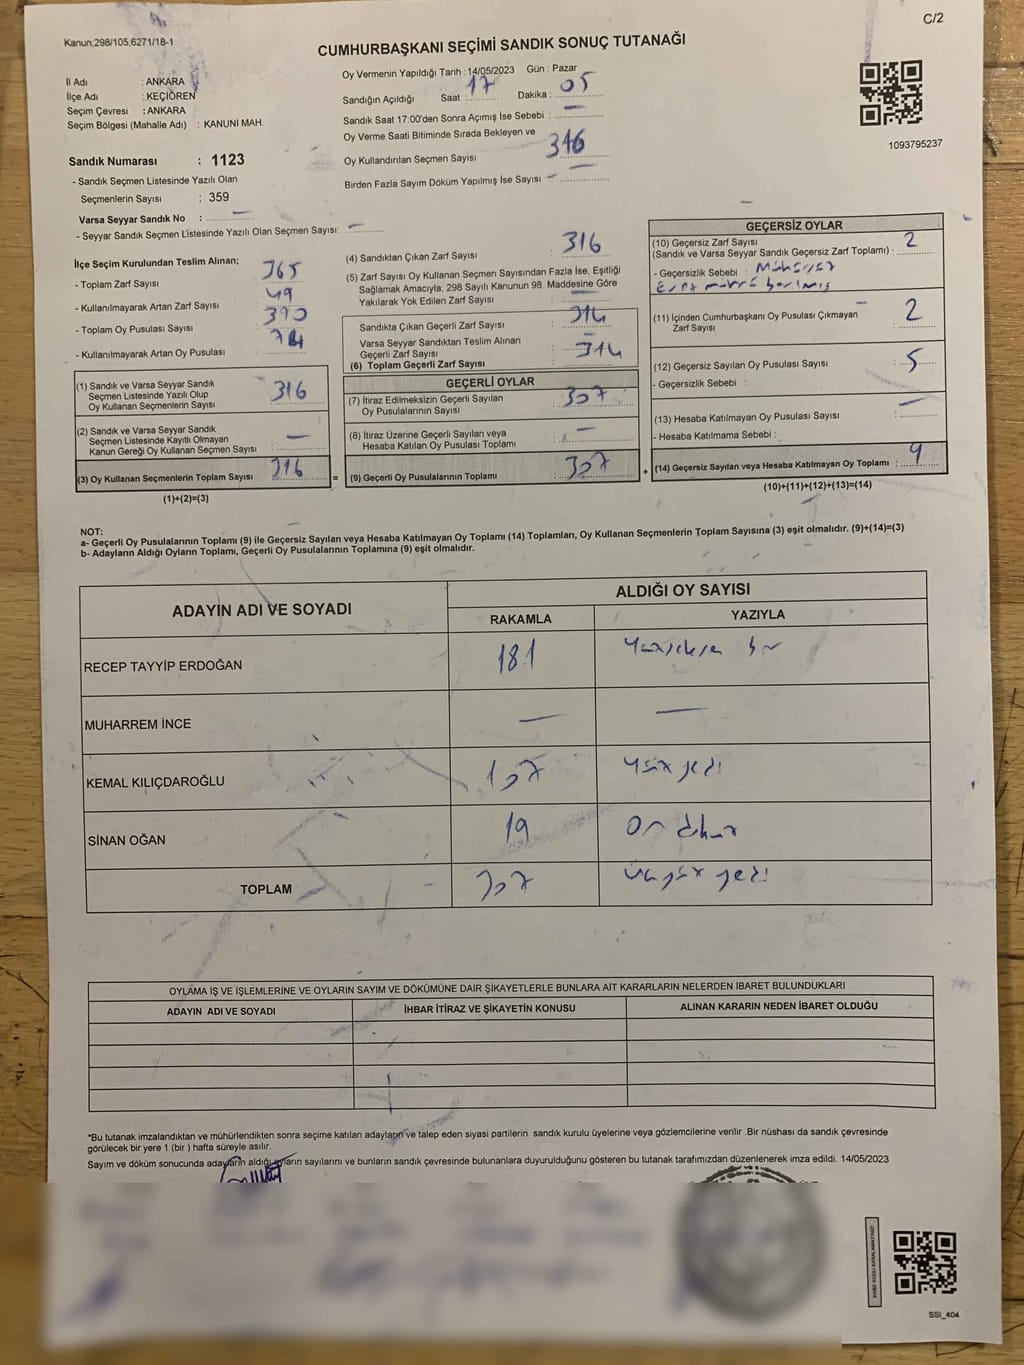 C/2
Kanun,298/105,6271/18-1
CUMHURBAŞKANI SEÇİMİ SANDIK SONUÇ TUTANAĞI
İl Adı : ANKARA
İlçe Adı : KEÇİÖREN
Seçim Çevresi : ANKARA
Seçim Bölgesi (Mahalle Adı) : KANUNİ MAH.
Sandık Numarası : 1123
- Sandık Seçmen Listesinde Yazılı Olan
Seçmenlerin Sayısı : 359
Varsa Seyyar Sandık No : —
- Seyyar Sandık Seçmen Listesinde Yazılı Olan Seçmen Sayısı: —
Oy Vermenin Yapıldığı Tarih :14/05/2023 Gün : Pazar
Sandığın Açıldığı Saat : 17 Dakika : 05
Sandık Saat 17:00'den Sonra Açımış İse Sebebi : —
Oy Verme Saati Bitiminde Sırada Bekleyen ve
Oy Kullandırılan Seçmen Sayısı 316
Birden Fazla Sayım Döküm Yapılmış İse Sayısı —
1093795237
İlçe Seçim Kurulundan Teslim Alınan;
- Toplam Zarf Sayısı : 365
- Kullanılmayarak Artan Zarf Sayısı : 49
- Toplam Oy Pusulası Sayısı : 390
- Kullanılmayarak Artan Oy Pusulası :
(1) Sandık ve Varsa Seyyar Sandık
Seçmen Listesinde Yazılı Olup
Oy Kullanan Seçmenlerin Sayısı : 316
(2) Sandık ve Varsa Seyyar Sandık
Seçmen Listesinde Kayıtlı Olmayan
Kanun Gereği Oy Kullanan Seçmen Sayısı : —
(3) Oy Kullanan Seçmenlerin Toplam Sayısı : 316
(1)+(2)=(3)
(4) Sandıktan Çıkan Zarf Sayısı : 316
(5) Zarf Sayısı Oy Kullanan Seçmen Sayısından Fazla İse, Eşitliği
Sağlamak Amacıyla; 298 Sayılı Kanunun 98. Maddesine Göre
Yakılarak Yok Edilen Zarf Sayısı : —
Sandıkta Çıkan Geçerli Zarf Sayısı : 314
Varsa Seyyar Sandıktan Teslim Alınan
Geçerli Zarf Sayısı : —
(6) Toplam Geçerli Zarf Sayısı : 314
GEÇERLİ OYLAR
(7) İtiraz Edilmeksizin Geçerli Sayılan
Oy Pusulalarının Sayısı : 307
(8) İtiraz Üzerine Geçerli Sayılan veya
Hesaba Katılan Oy Pusulası Toplamı : —
= (9) Geçerli Oy Pusulalarının Toplamı : 307 +
GEÇERSİZ OYLAR
(10) Geçersiz Zarf Sayısı
(Sandık ve Varsa Seyyar Sandık Geçersiz Zarf Toplamı) : 2
- Geçersizlik Sebebi :
(11) İçinden Cumhurbaşkanı Oy Pusulası Çıkmayan
Zarf Sayısı : 2
(12) Geçersiz Sayılan Oy Pusulası Sayısı : 5
- Geçersizlik Sebebi :
(13) Hesaba Katılmayan Oy Pusulası Sayısı : —
- Hesaba Katılmama Sebebi :
(14) Geçersiz Sayılan veya Hesaba Katılmayan Oy Toplamı : 9
(10)+(11)+(12)+(13)=(14)
NOT:
a- Geçerli Oy Pusulalarının Toplamı (9) ile Geçersiz Sayılan veya Hesaba Katılmayan Oy Toplamı (14) Toplamları, Oy Kullanan Seçmenlerin Toplam Sayısına (3) eşit olmalıdır. (9)+(14)=(3)
b- Adayların Aldığı Oyların Toplamı, Geçerli Oy Pusulalarının Toplamına (9) eşit olmalıdır.
ADAYIN ADI VE SOYADI
ALDIĞI OY SAYISI
RAKAMLA YAZIYLA
RECEP TAYYİP ERDOĞAN 181 Yüzseksen bir
MUHARREM İNCE — —
KEMAL KILIÇDAROĞLU 107 Yüz yedi
SİNAN OĞAN 19 On dokuz
TOPLAM 307 Üçyüz yedi
OYLAMA İŞ VE İŞLEMLERİNE VE OYLARIN SAYIM VE DÖKÜMÜNE DAİR ŞİKAYETLERLE BUNLARA AİT KARARLARIN NELERDEN İBARET BULUNDUKLARI
ADAYIN ADI VE SOYADI İHBAR İTİRAZ VE ŞİKAYETİN KONUSU ALINAN KARARIN NEDEN İBARET OLDUĞU
*Bu tutanak imzalandıktan ve mühürlendikten sonra seçime katılan adayların ve talep eden siyasi partilerin sandık kurulu üyelerine veya gözlemcilerine verilir .Bir nüshası da sandık çevresinde
görülecek bir yere 1 (bir ) hafta süreyle asılır.
Sayım ve döküm sonucunda adayların aldığı oyların sayılarını ve bunların sandık çevresinde bulunanlara duyurulduğunu gösteren bu tutanak tarafımızdan düzenlenerek imza edildi. 14/05/2023
SSI_404